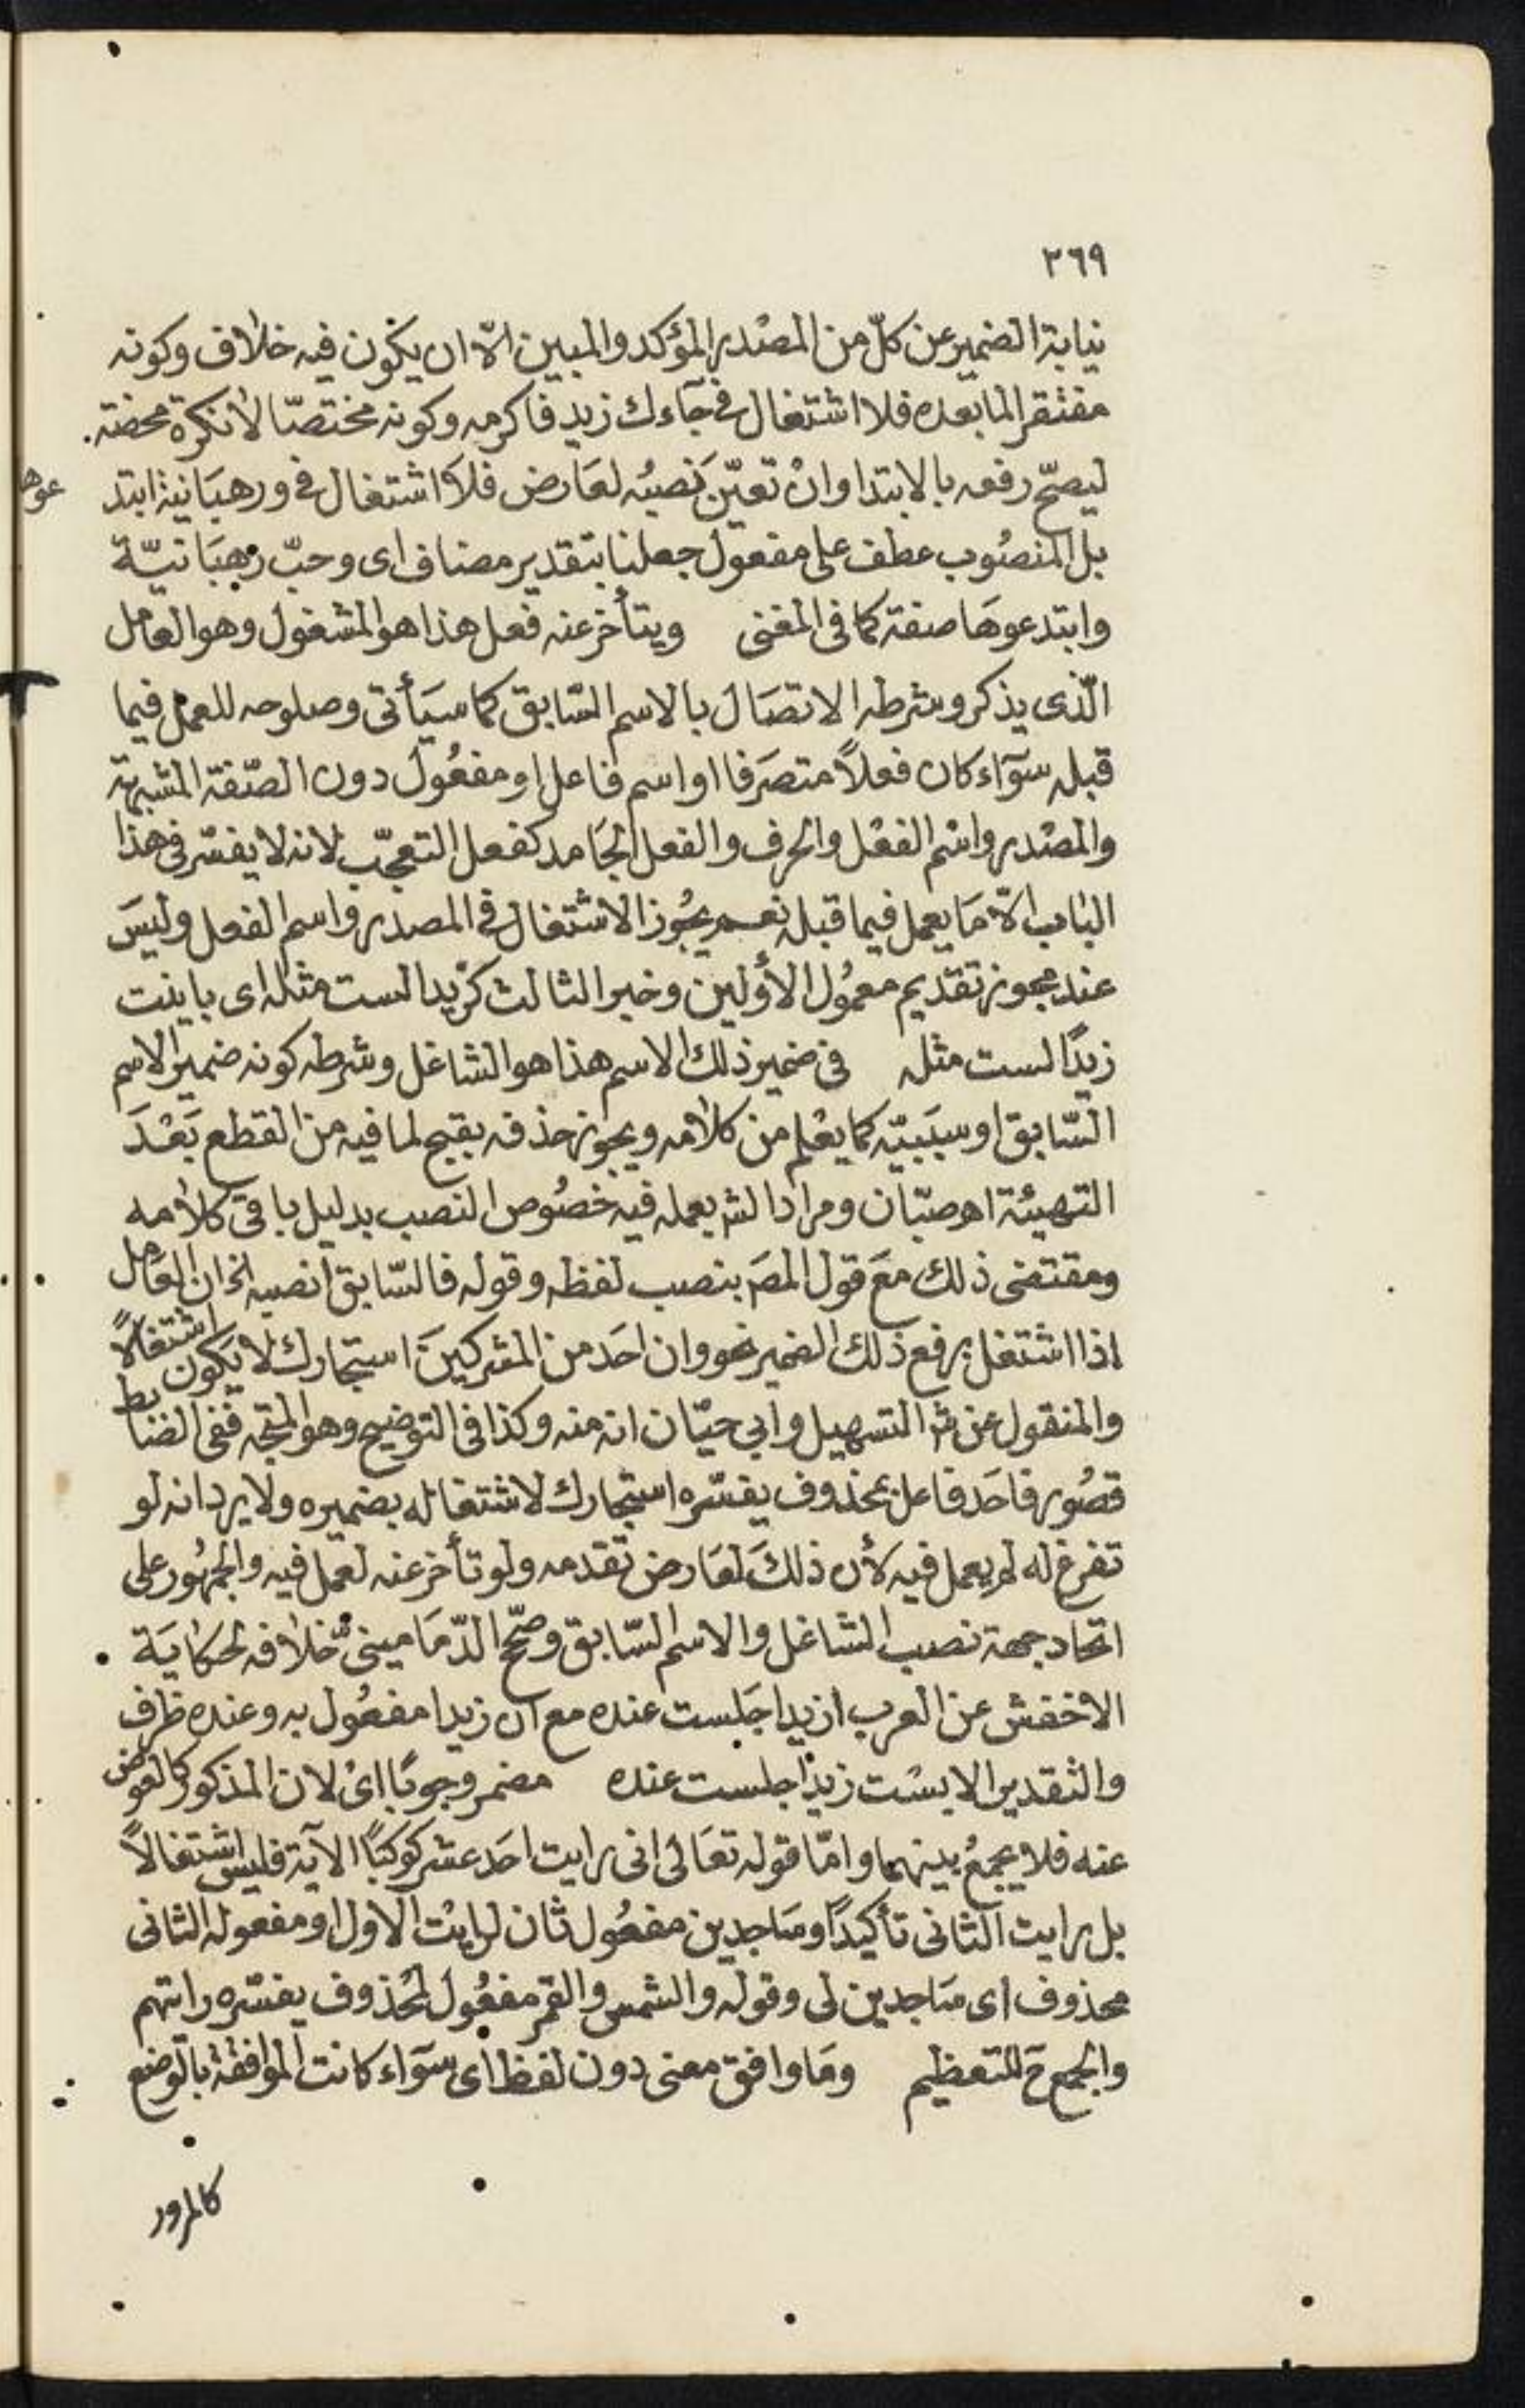 ٢٦٩
نيابة الضمير عن كلّ من المصْدر المؤكد والمبين الّا ان يكون فيه خلاف وكونه
مفتقر المابعده فلا اشتغال فى جآءك زيد فاكرمه وكونه مختصّا لا نكرة محضة
ليصحّ رفعه بالابتدا وانْ تعيّن نصبُه لعَارض فلا اشتغال فى ورهبَانية ابتد
عوها
بل المنصُوب عطف على مفعول جعلنا بتقدير مضاف اى وحبّ رهبَانيّة
وابتدعوهَا صفة كما فى المغنى ويتأخر عنه فعل هذا هو المشغول وهو العامل
الّذى يذكر وشرطه الاتصَال بالاسم السّابق كما سيَأتى وصلوحه للعمل فيما
قبله سوآء كان فعلاً متصَرفا او اسم فاعل او مفعُول دون الصّفة المشبهة
والمصْدر واسْم الفعْل والحرف والفعل الجَامد كفعل التعجّب لانه لا يفسّر فى هذا
الباب الّا مَا يعمل فيما قبله نعم يجُوز الاشتغال فى المصدر واسم الفعل وليسَ
عند مجوز تقديم معمُول الأوّلين وخبر الثالث كزيدا لست مثله اى باينت
زيدًا لست مثله فى ضمير ذلك الاسم هذا هو الشاغل وشرطه كونه ضمير الاسم
السّابق او سببَيّه كما يعْلم من كلامه ويجوز حذفه بقبح لما فيه من القطع بَعْدَ
التهيئة اهـ صبّان ومراد الش بعمله فيه خصُوص النصب بدليل باقى كلامه
ومقتضى ذلك معَ قول المصَ بنصب لفظه وقوله فالسّابق انصبه الخ ان العَامل
اذا اشتغل برفع ذلك الضمير نحو وان احَد من المشركينَ استجارك لا يكون اشتغالاً
والمنقول عن ش التسهيل وابي حيّان انه منه وكذا فى التوضيح وهو المتجه ففى الضابط
قصُور فاحَد فاعل بمحذوف يفسّره استجارك لاشتغاله بضميره ولا يرد انه لو
تفرغ له لم يعمل فيه لأن ذلكَ لعَارض تقدمه ولو تأخر عنه لعمل فيه والجمهُور على
اتحاد جهة نصب الشاغل والاسم السّابق وصحّح الدّمَامينىّ خلافه لحكايَة
الاخفش عن العرب ازيدا جَلست عنده مع ان زيدا مفعُول به وعنده ظرف
والتقدير الابسْت زيدًا جلست عنده مضمر وجوبًا اىْ لان المذكور كالعوض
عنه فلا يجمعُ بينهما وامّا قوله تعَالى انى رايت احَد عشر كوكبًا الآية فليس اشتغالاً
بل رايت الثانى تأكيدًا وسَاجدين مفعُول ثان لرايْت الاول او مفعوله الثانى
محذوف اى سَاجدين لى وقوله والشمس والقمر مفعُول لمحْذوف يفسّره رايتهم
والجمع ح للتعظيم ومَا وافق معنى دون لفظ اى سوآء كانت الموافقة بالوضع
كالمرور